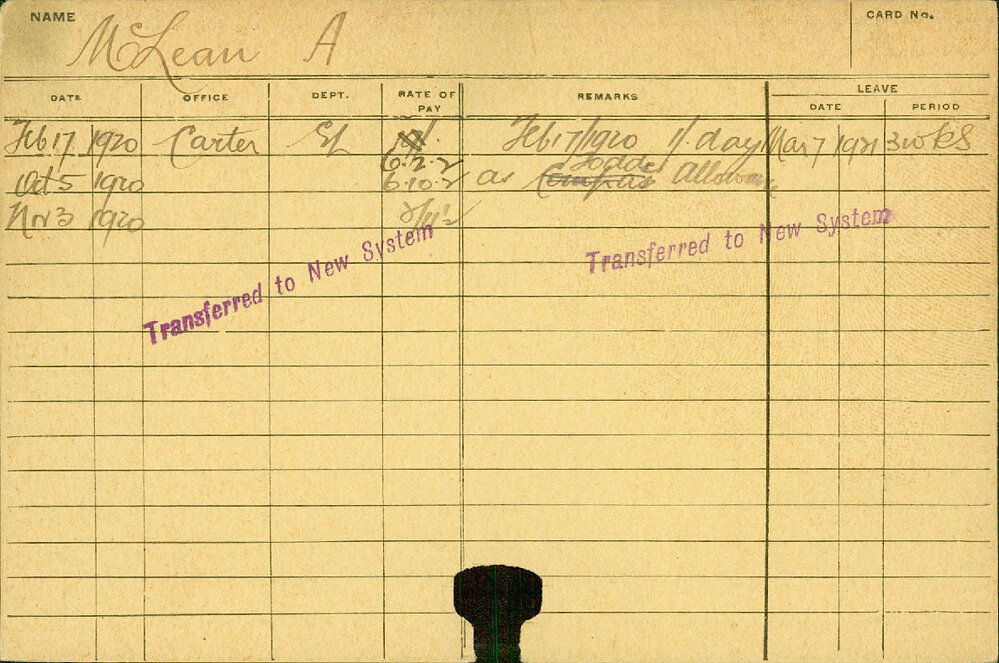 NAME CARD No.
McLean A
DATE OFFICE DEPT. RATE OF PAY REMARKS LEAVE
DATE PERIOD
Feb 17 1920 Carter EL Feb 17/1920 1/. day Mar 7 1921 3 wks
6.2.2
Oct 5 1920 6.10.2 as
Nov 3 1920
Transferred to New System
Transferred to New System